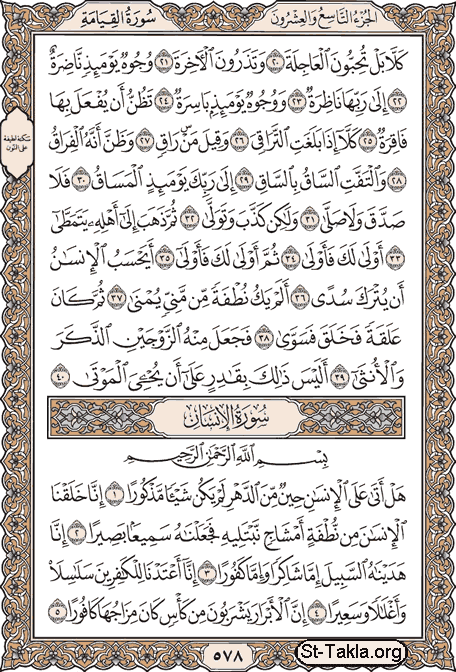 الجزء التاسع والعشرون
سورة القيامة
كَلَّا بَلْ تُحِبُّونَ الْعَاجِلَةَ ٢٠ وَتَذَرُونَ الْآخِرَةَ ٢١ وُجُوهٌ يَوْمَئِذٍ نَّاضِرَةٌ
٢٢ إِلَىٰ رَبِّهَا نَاظِرَةٌ ٢٣ وَوُجُوهٌ يَوْمَئِذٍ بَاسِرَةٌ ٢٤ تَظُنُّ أَن يُفْعَلَ بِهَا
فَاقِرَةٌ ٢٥ كَلَّا إِذَا بَلَغَتِ التَّرَاقِيَ ٢٦ وَقِيلَ مَنْ رَاقٍ ٢٧ وَظَنَّ أَنَّهُ الْفِرَاقُ
٢٨ وَالْتَفَّتِ السَّاقُ بِالسَّاقِ ٢٩ إِلَىٰ رَبِّكَ يَوْمَئِذٍ الْمَسَاقُ ٣٠ فَلَا
صَدَّقَ وَلَا صَلَّىٰ ٣١ وَلَٰكِن كَذَّبَ وَتَوَلَّىٰ ٣٢ ثُمَّ ذَهَبَ إِلَىٰ أَهْلِهِ يَتَمَطَّىٰ
٣٣ أَوْلَىٰ لَكَ فَأَوْلَىٰ ٣٤ ثُمَّ أَوْلَىٰ لَكَ فَأَوْلَىٰ ٣٥ أَيَحْسَبُ الْإِنسَانُ
أَن يُتْرَكَ سُدًى ٣٦ أَلَمْ يَكُ نُطْفَةً مِّن مَّنِيٍّ يُمْنَىٰ ٣٧ ثُمَّ كَانَ
عَلَقَةً فَخَلَقَ فَسَوَّىٰ ٣٨ فَجَعَلَ مِنْهُ الزَّوْجَيْنِ الذَّكَرَ
وَالْأُنثَىٰ ٣٩ أَلَيْسَ ذَٰلِكَ بِقَادِرٍ عَلَىٰ أَن يُحْيِيَ الْمَوْتَىٰ ٤٠
سورة الإنسان
بِسْمِ اللَّهِ الرَّحْمَٰنِ الرَّحِيمِ
هَلْ أَتَىٰ عَلَى الْإِنسَانِ حِينٌ مِّنَ الدَّهْرِ لَمْ يَكُن شَيْئًا مَّذْكُورًا ١ إِنَّا خَلَقْنَا
الْإِنسَانَ مِن نُّطْفَةٍ أَمْشَاجٍ نَّبْتَلِيهِ فَجَعَلْنَاهُ سَمِيعًا بَصِيرًا ٢ إِنَّا
هَدَيْنَاهُ السَّبِيلَ إِمَّا شَاكِرًا وَإِمَّا كَفُورًا ٣ إِنَّا أَعْتَدْنَا لِلْكَافِرِينَ سَلَاسِلَا
وَأَغْلَالًا وَسَعِيرًا ٤ إِنَّ الْأَبْرَارَ يَشْرَبُونَ مِن كَأْسٍ كَانَ مِزَاجُهَا كَافُورًا ٥
٥٧٨
St-Takla.org